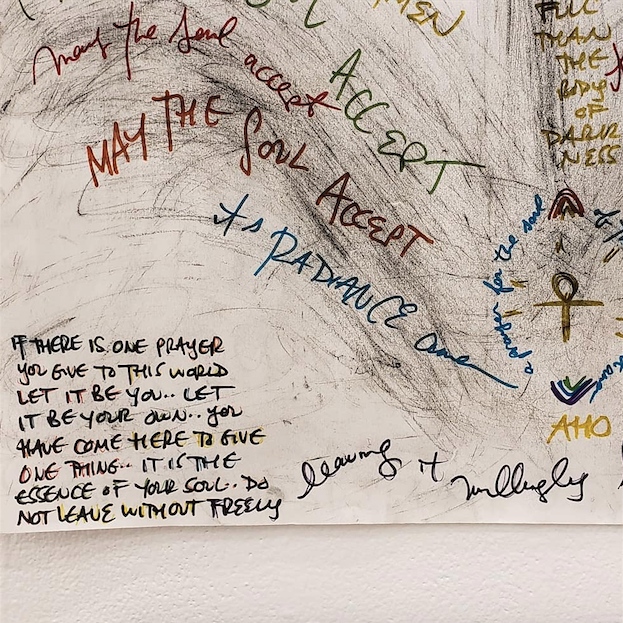 MEN
may the soul
accept
ACCEPT
MAY THE
SOUL
ACCEPT
its
RADIANCE amen
FULL
THAN
THE
BODY
OF
DARK
NESS
a prayer for the soul
AHO
IF THERE IS ONE PRAYER
YOU GIVE TO THIS WORLD
LET IT BE YOU.. LET
IT BE YOUR OWN.. YOU
HAVE COME HERE TO GIVE
ONE THING.. IT IS THE
ESSENCE OF YOUR SOUL.. DO
NOT LEAVE WITHOUT FREELY
leaving it
willingly